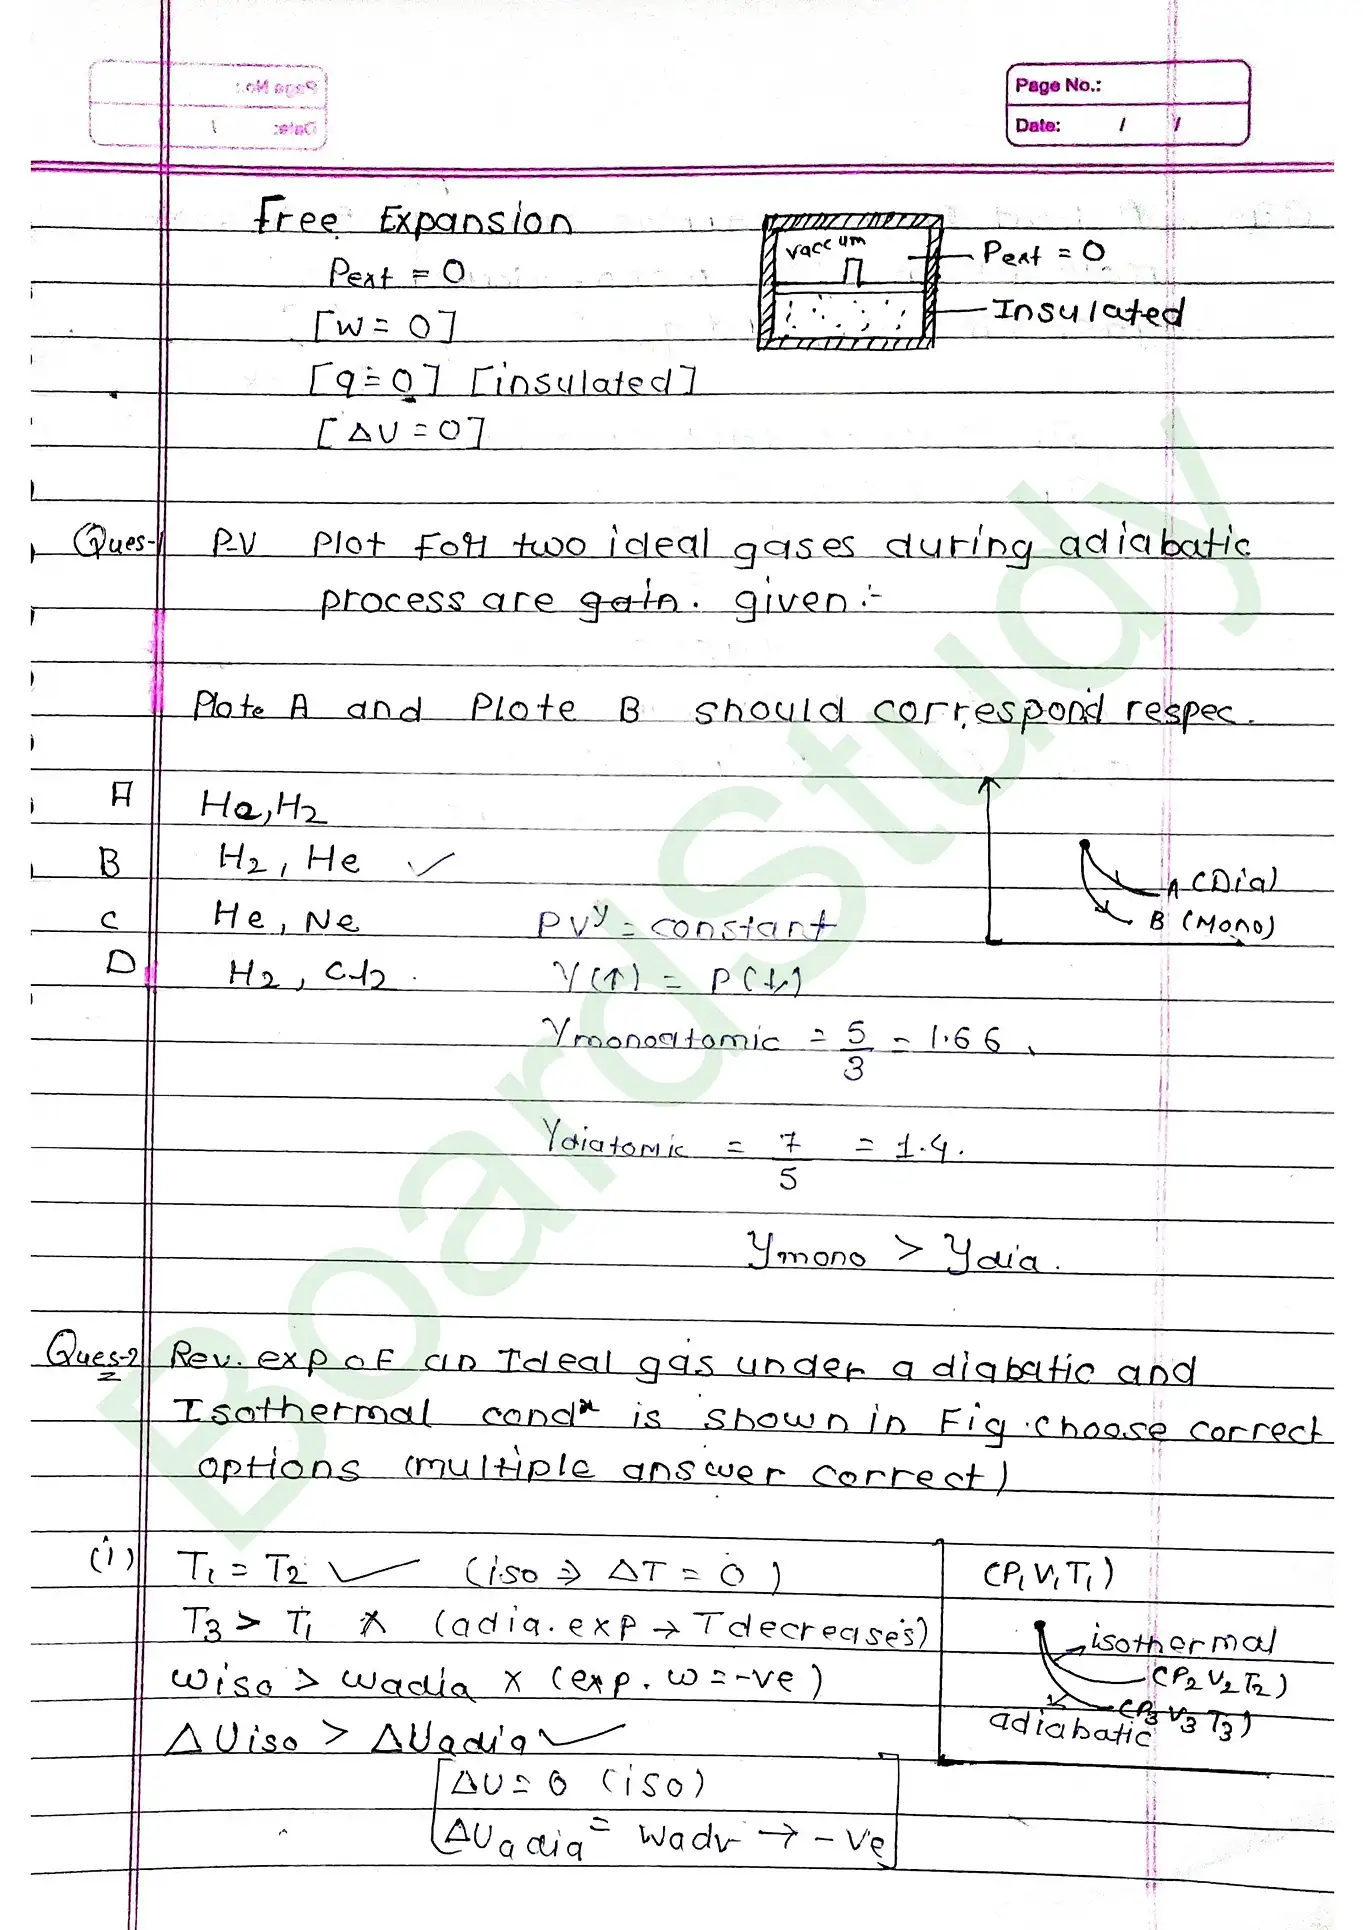 Page No.:
Date: / /
Free Expansion
Pext = 0
[w = 0]
[q = 0] [insulated]
[ΔU = 0]
vaccum
Pext = 0
Insulated
Ques-1 P-V Plot For two ideal gases during adiabatic
process are gain. given:-
Plote A and Plote B should correspond respec.
A He, H2
B H2, He ✓
C He, Ne
D H2, Cl2.
A (Dia)
B (Mono)
PVγ = constant
γ(↑) = P(↓)
γmonoatomic = 5/3 = 1.66
γdiatomic = 7/5 = 1.4.
γmono > γdia.
Ques-2 Rev. exp of an Ideal gas under adiabatic and
Isothermal condn is shown in Fig. choose correct
options (multiple answer correct)
(i) T1 = T2 ✓ (iso ⇒ ΔT = 0)
T3 > T1 × (adia. exp → T decreases)
wiso > wadia × (exp. w = -ve)
ΔUiso > ΔUadia ✓
[ΔU = 0 (iso)
ΔUadia = wadv → -ve]
(P1 V1 T1)
isothermal
(P2 V2 T2)
(P3 V3 T3)
adiabatic
BoardStudy